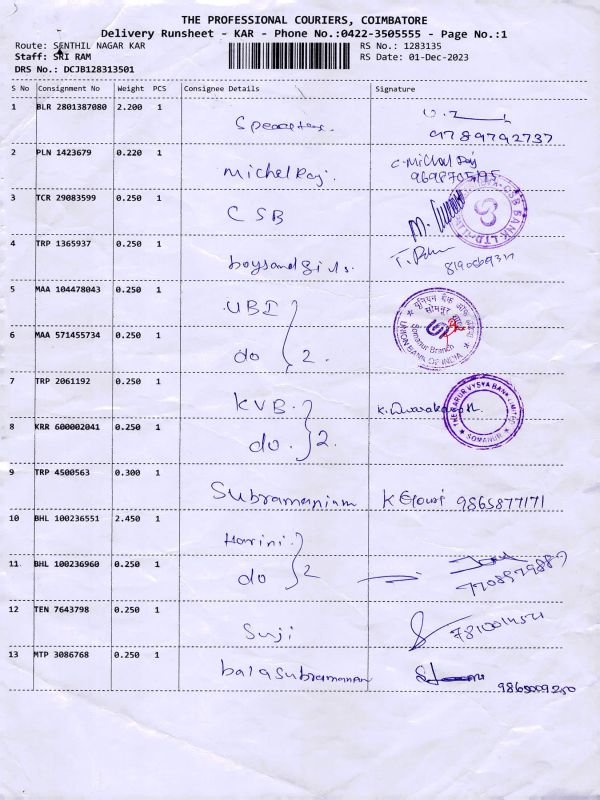 THE PROFESSIONAL COURIERS, COIMBATORE
Delivery Runsheet - KAR - Phone No.:0422-3505555 - Page No.:1
Route: SENTHIL NAGAR KAR
RS No.: 1283135
Staff: SRI RAM
RS Date: 01-Dec-2023
DRS No.: DCJB128313501
S No Consignment No Weight PCS Consignee Details Signature
1 BLR 2801387080 2.200 1
9789792737
2 PLN 1423679 0.220 1 Michel Raj. C. Michal Raj
9698705195
3 TCR 29083599 0.250 1 CSB
CSB BANK LTD
4 TRP 1365937 0.250 1 boysandgirls.
5 MAA 104478043 0.250 1 UBI
यूनियन बैंक ऑफ इंडिया
Somanur Branch
UNION BANK OF INDIA
6 MAA 571455734 0.250 1 do 2.
7 TRP 2061192 0.250 1 KVB.
THE KARUR VYSYA BANK LIMITED
SOMANUR
8 KRR 600002041 0.250 1 do. 2.
9 TRP 4500563 0.300 1 Subramanium 9865877171
10 BHL 100236551 2.450 1 Harini.
11 BHL 100236960 0.250 1 do 2
12 TEN 7643798 0.250 1 Suji
13 MTP 3086768 0.250 1 balasubramanian